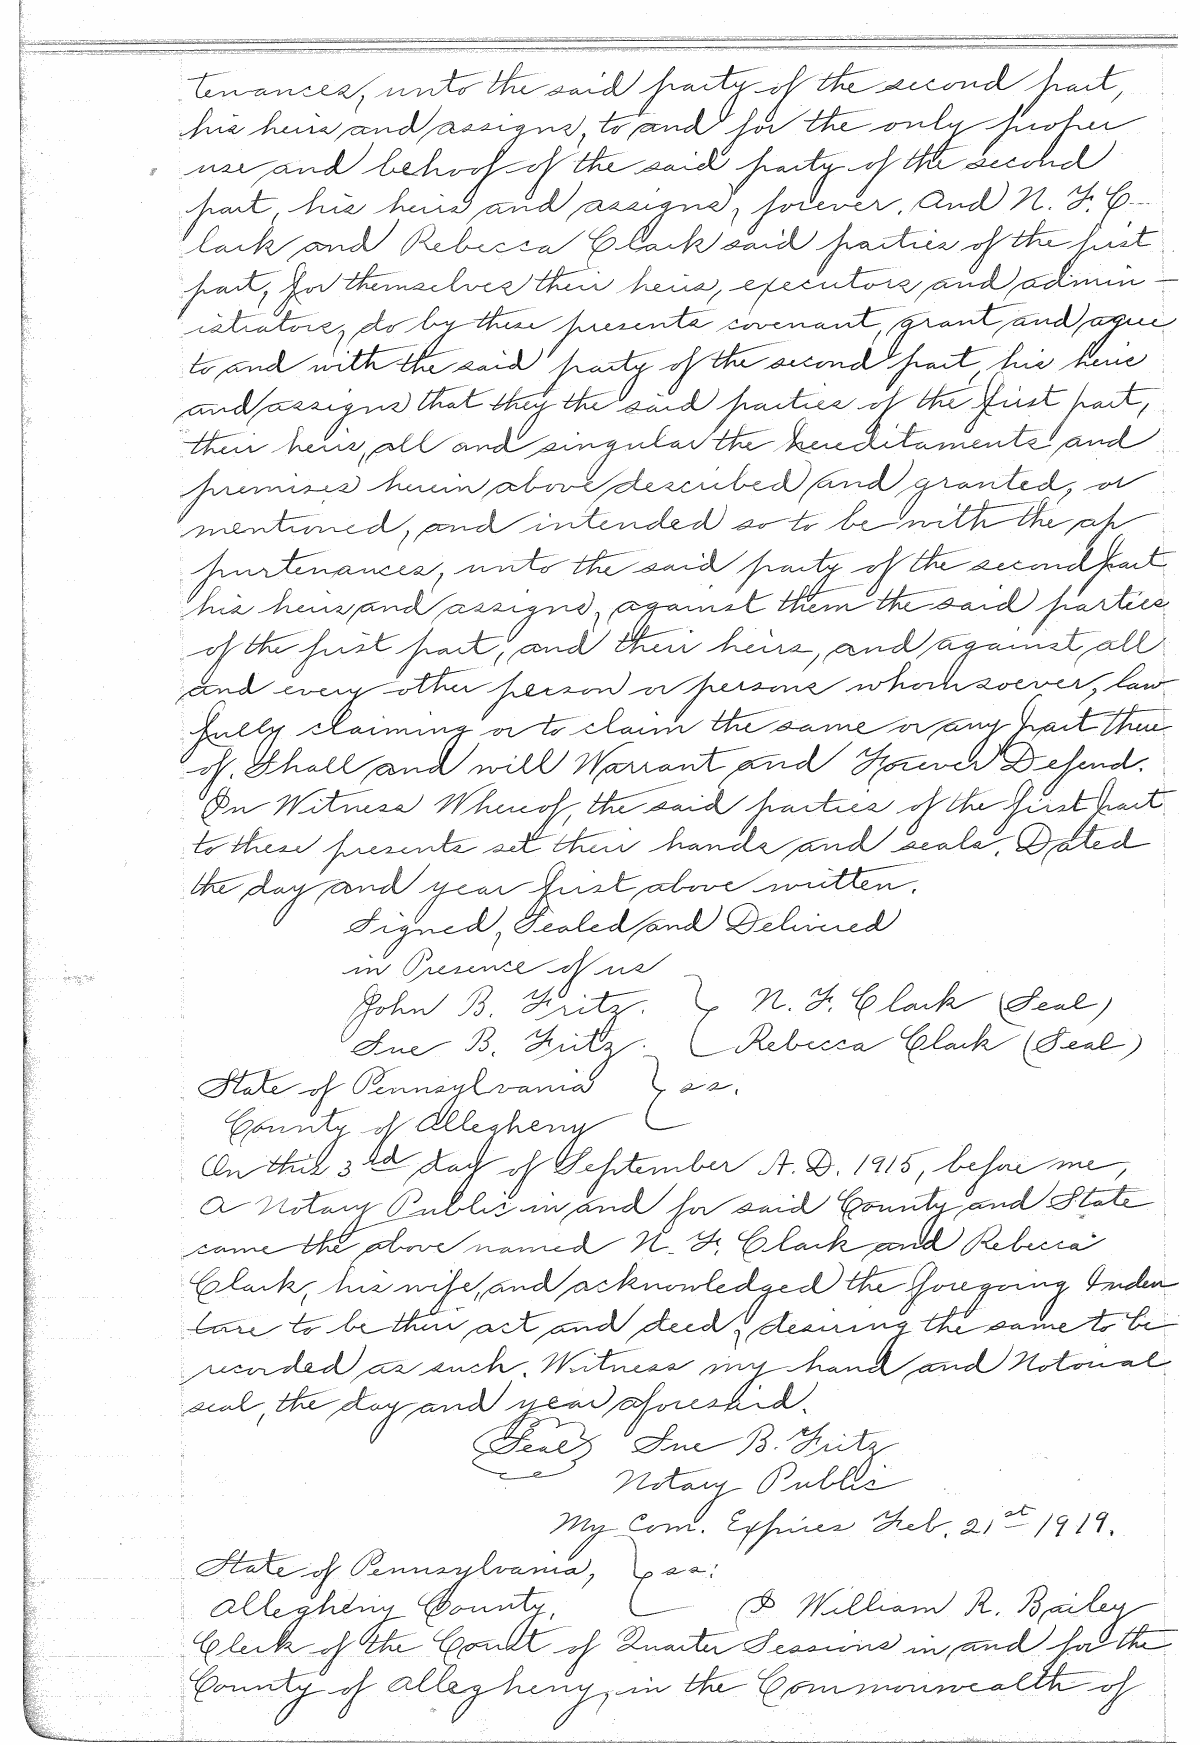 tenances, unto the said party of the second part,
his heirs and assigns, to and for the only proper
use and behoof of the said party of the second
part, his heirs and assigns, forever. And N. F. C-
lark and Rebecca Clark said parties of the first
part, for themselves their heirs, executors and admin-
istrators, do by these presents covenant, grant and agree
to and with the said party of the second part, his heirs
and assigns that they the said parties of the first part,
their heirs, all and singular the hereditaments and
premises herein above described and granted, or
mentioned, and intended so to be with the ap
purtenances, unto the said party of the second part
his heirs and assigns, against them the said parties
of the first part, and their heirs, and against all
and every other person or persons whomsoever, law
fully claiming or to claim the same or any part there
of. Shall and will Warrant and Forever Defend.
In Witness Whereof, the said parties of the first part
to these presents set their hands and seals. Dated
the day and year first above written.
Signed, Sealed and Delivered
in Presence of us
John B. Fritz. } N. F. Clark (Seal)
Sue B. Fritz. { Rebecca Clark (Seal)
State of Pennsylvania } ss.
County of Allegheny
On this 3rd day of September A. D. 1915, before me,
a Notary Public in and for said County and State
came the above named N. F. Clark and Rebecca
Clark, his wife, and acknowledged the foregoing Inden
ture to be their act and deed, desiring the same to be
recorded as such. Witness my hand and Notorial
seal, the day and year aforesaid.
(Seal) Sue B. Fritz
Notary Public
My Com. Expires Feb. 21st 1919.
State of Pennsylvania, } ss:
Allegheny County, I William R. Bailey
Clerk of the Court of Quarter Sessions in and for the
County of Allegheny, in the Commonwealth of